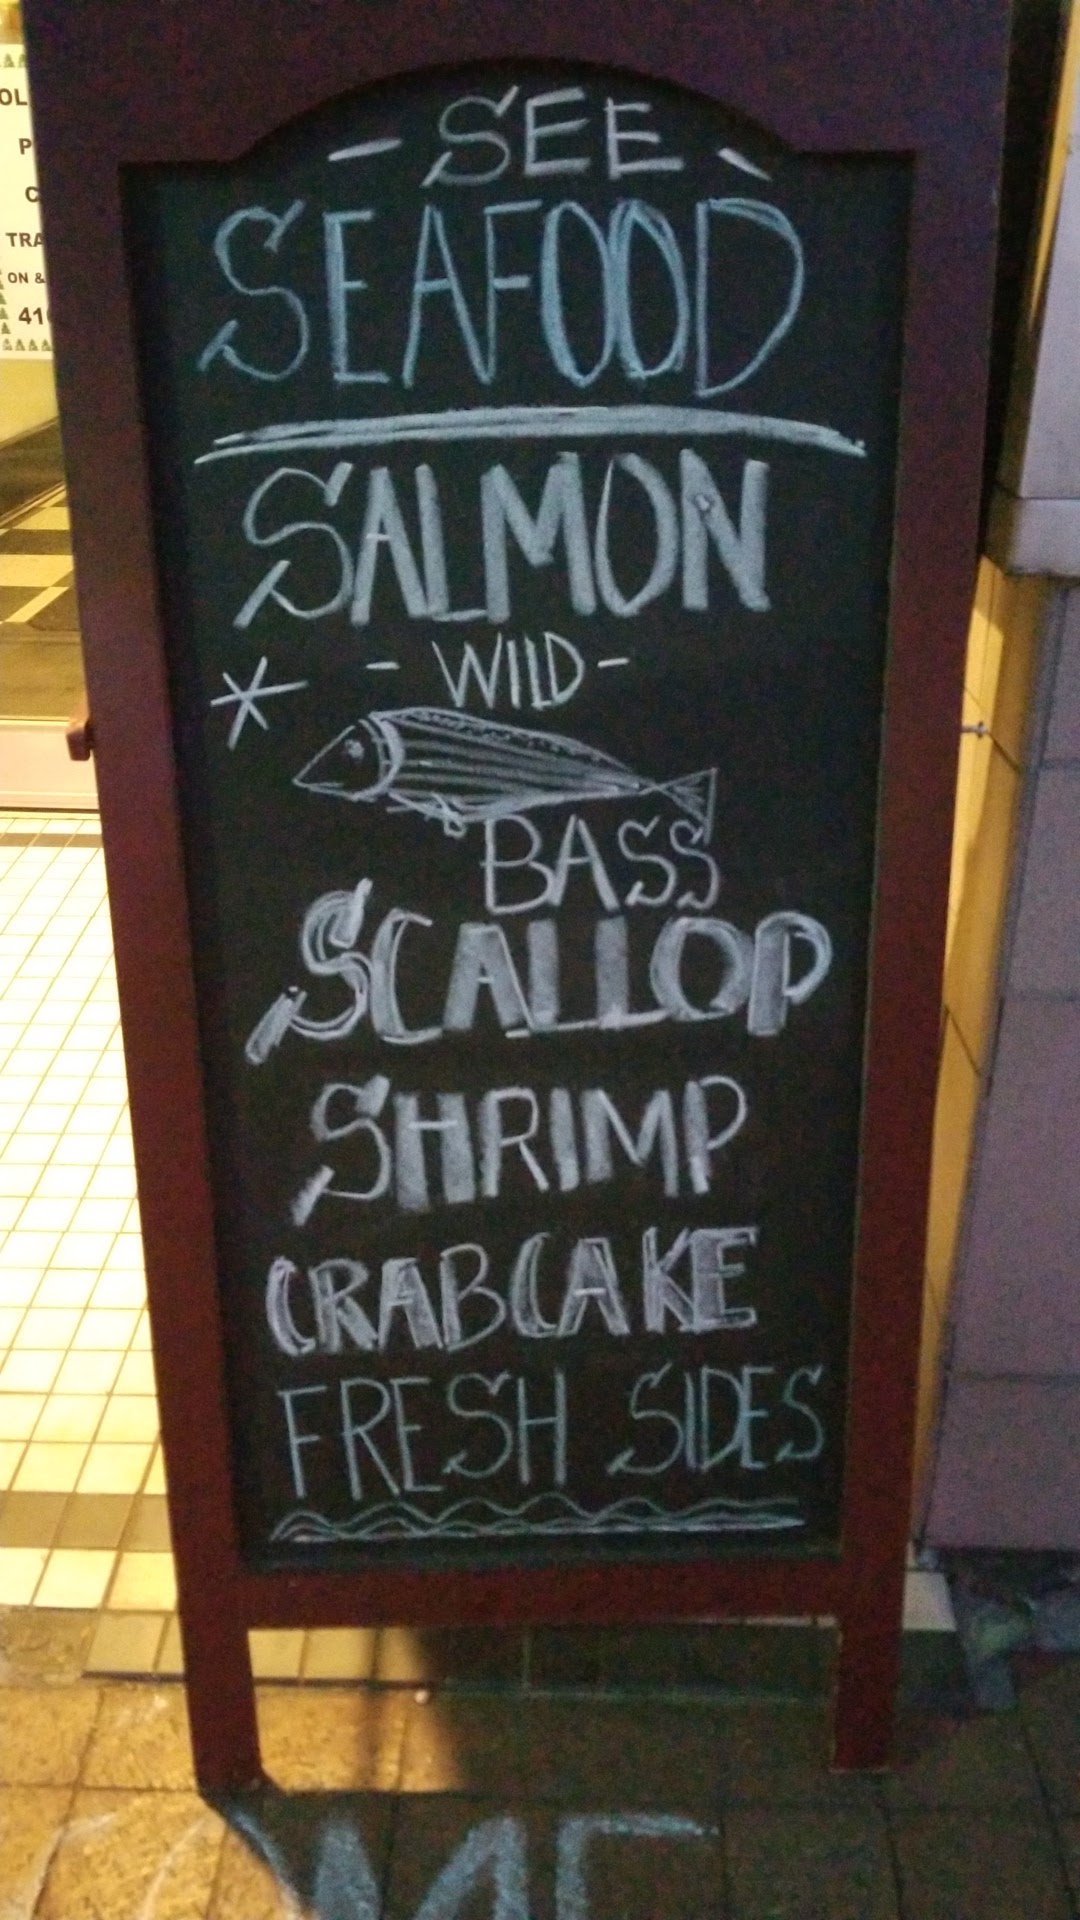 - SEE -
SEAFOOD
SALMON
* - WILD -
BASS
SCALLOP
SHRIMP
CRABCAKE
FRESH SIDES
TRA
ON &